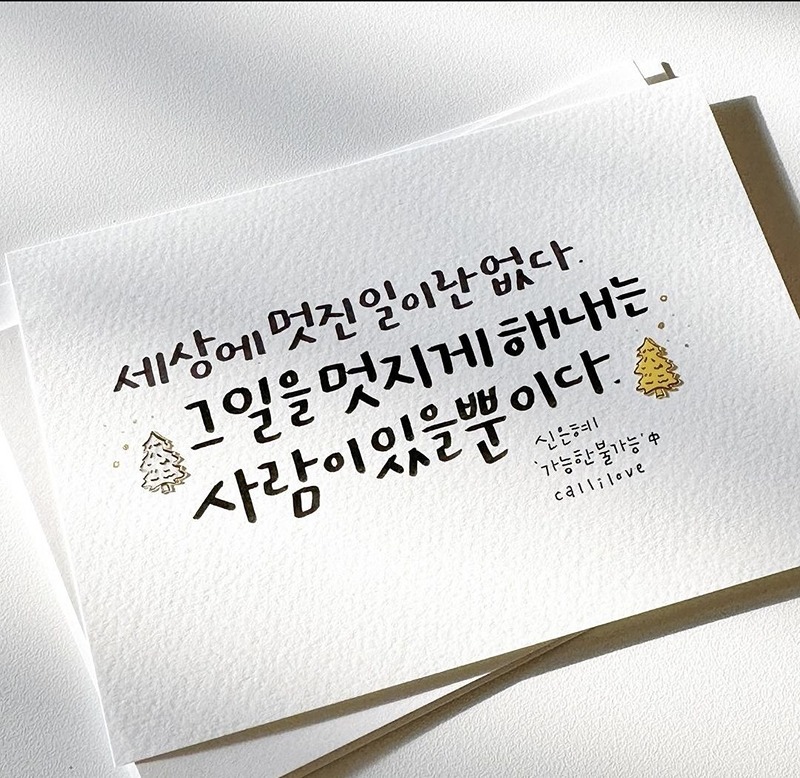 세상에 멋진 일이란 없다.
그 일을 멋지게 해내는
사람이 있을 뿐이다.
신은혜
'가능한 불가능' 中
callilove